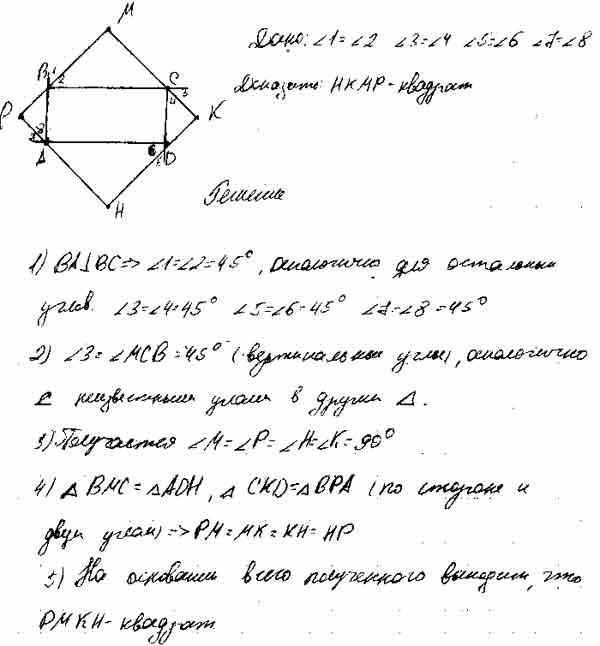 M
Дано: ∠1=∠2 ∠3=∠4 ∠5=∠6 ∠7=∠8
B 1 2 C 4 3
Доказать: НКМР-квадрат
P K
A 6 D
H
Решение
1) BA⊥BC => ∠1=∠2=45°, аналогично для остальных
углов. ∠3=∠4=45° ∠5=∠6=45° ∠7=∠8=45°
2) ∠3=∠MCB=45° (вертикальные углы), аналогично
с неизвестными углами в других Δ.
3) Получается ∠M=∠P=∠H=∠K=90°
4) Δ BMC=ΔADH, Δ CKD=ΔBPA (по стороне и
двум углам) => PM=MK=KH=HP
5) На основании всего полученного выходит, что
PMKH-квадрат